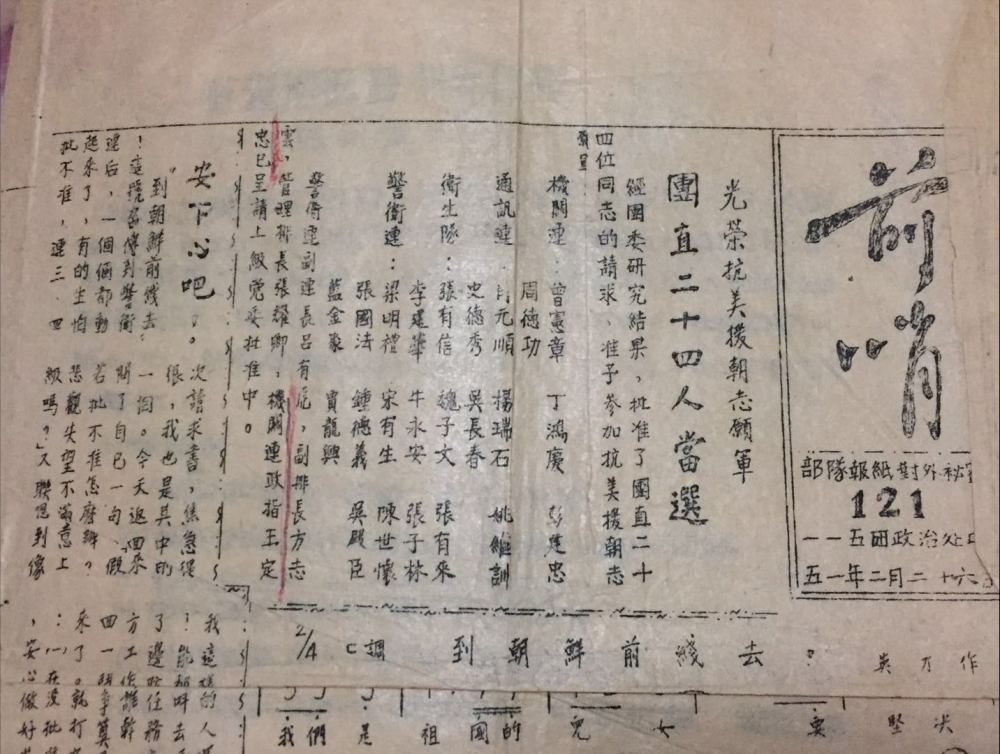 前哨
部隊報紙對外祕
121
一一五团政治处
五一年二月二十六
光榮抗美援朝志願軍
團直二十四人當選
經團委研究結果，批准了團直二十
四位同志的請求，准予參加抗美援朝志
願軍
機關連：曾憲章 丁鴻慶 彭楚忠
周德功
通訊連：肖元順 楊瑞石 姚継訓
史德秀 吳長春
衛生隊：張有信 魏子文 張有來
李建華 牛永安 張子林
警衛連：梁明禮 宋有生 陳世懷
張國法 鍾德義 吳殿臣
藍金象 賈龍興
警衛連副連長呂有虎，副排長方志
雲，管理排長張耀卿，機關連政指王定
忠已呈請上級党委批准中。
安下心吧。
「到朝鮮前綫去
！這號召傳到警衛
連后，一個個都動
起來了，有的生怕
批不准，連三、四
次請求書，焦急得
很，我也是其中的
一個。今天返回來
問了自己一句、「假
若批不准怎麼辦？
悲觀失望不滿意上
級嗎？」又聯想到像
我這樣的人
方工作誰幹
來了。就打
安心做好
到朝鮮前綫去？ 吳刀作
2/4 C調
我們是祖國的兒女 要堅决